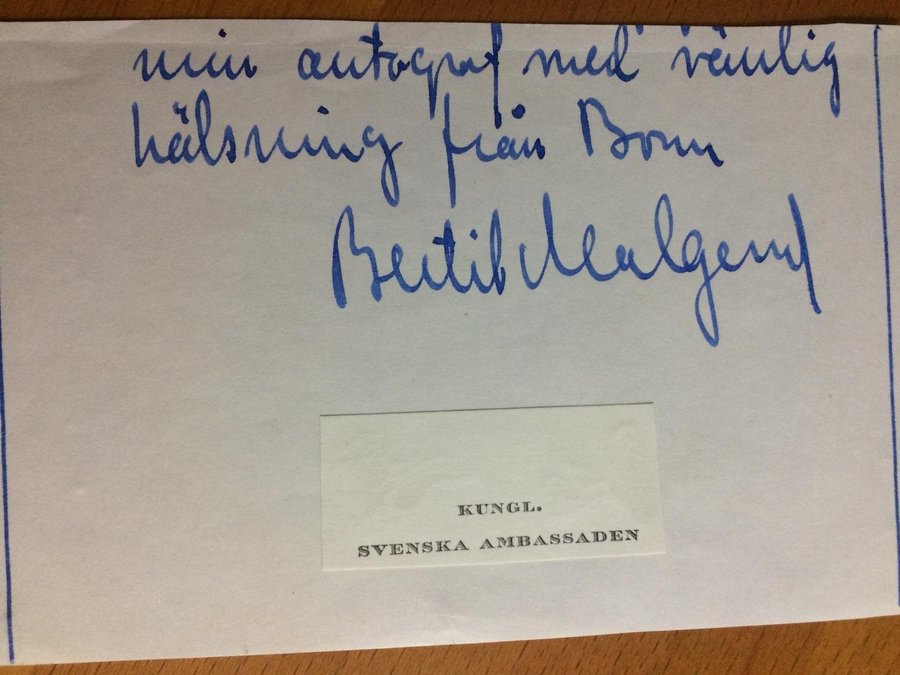 min autograf med vänlig
hälsning från Bonn
Bertil Malgerud
KUNGL.
SVENSKA AMBASSADEN